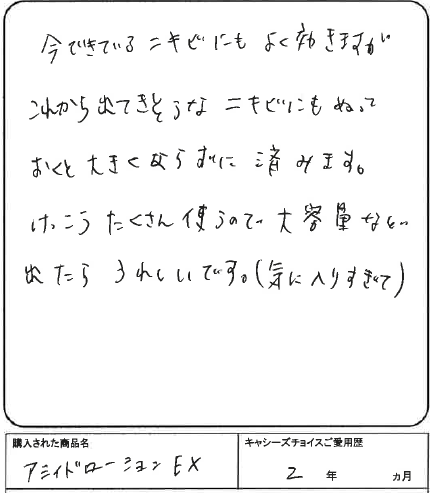 今できているニキビにもよく効きますが
これから出てきそうなニキビにもぬって
おくと大きくならずに済みます。
けっこうたくさん使うので大容量など
出たらうれしいです。(気に入りすぎて)
購入された商品名
キャシーズチョイスご愛用歴
アミノイドローションEX
2 年 ヵ月